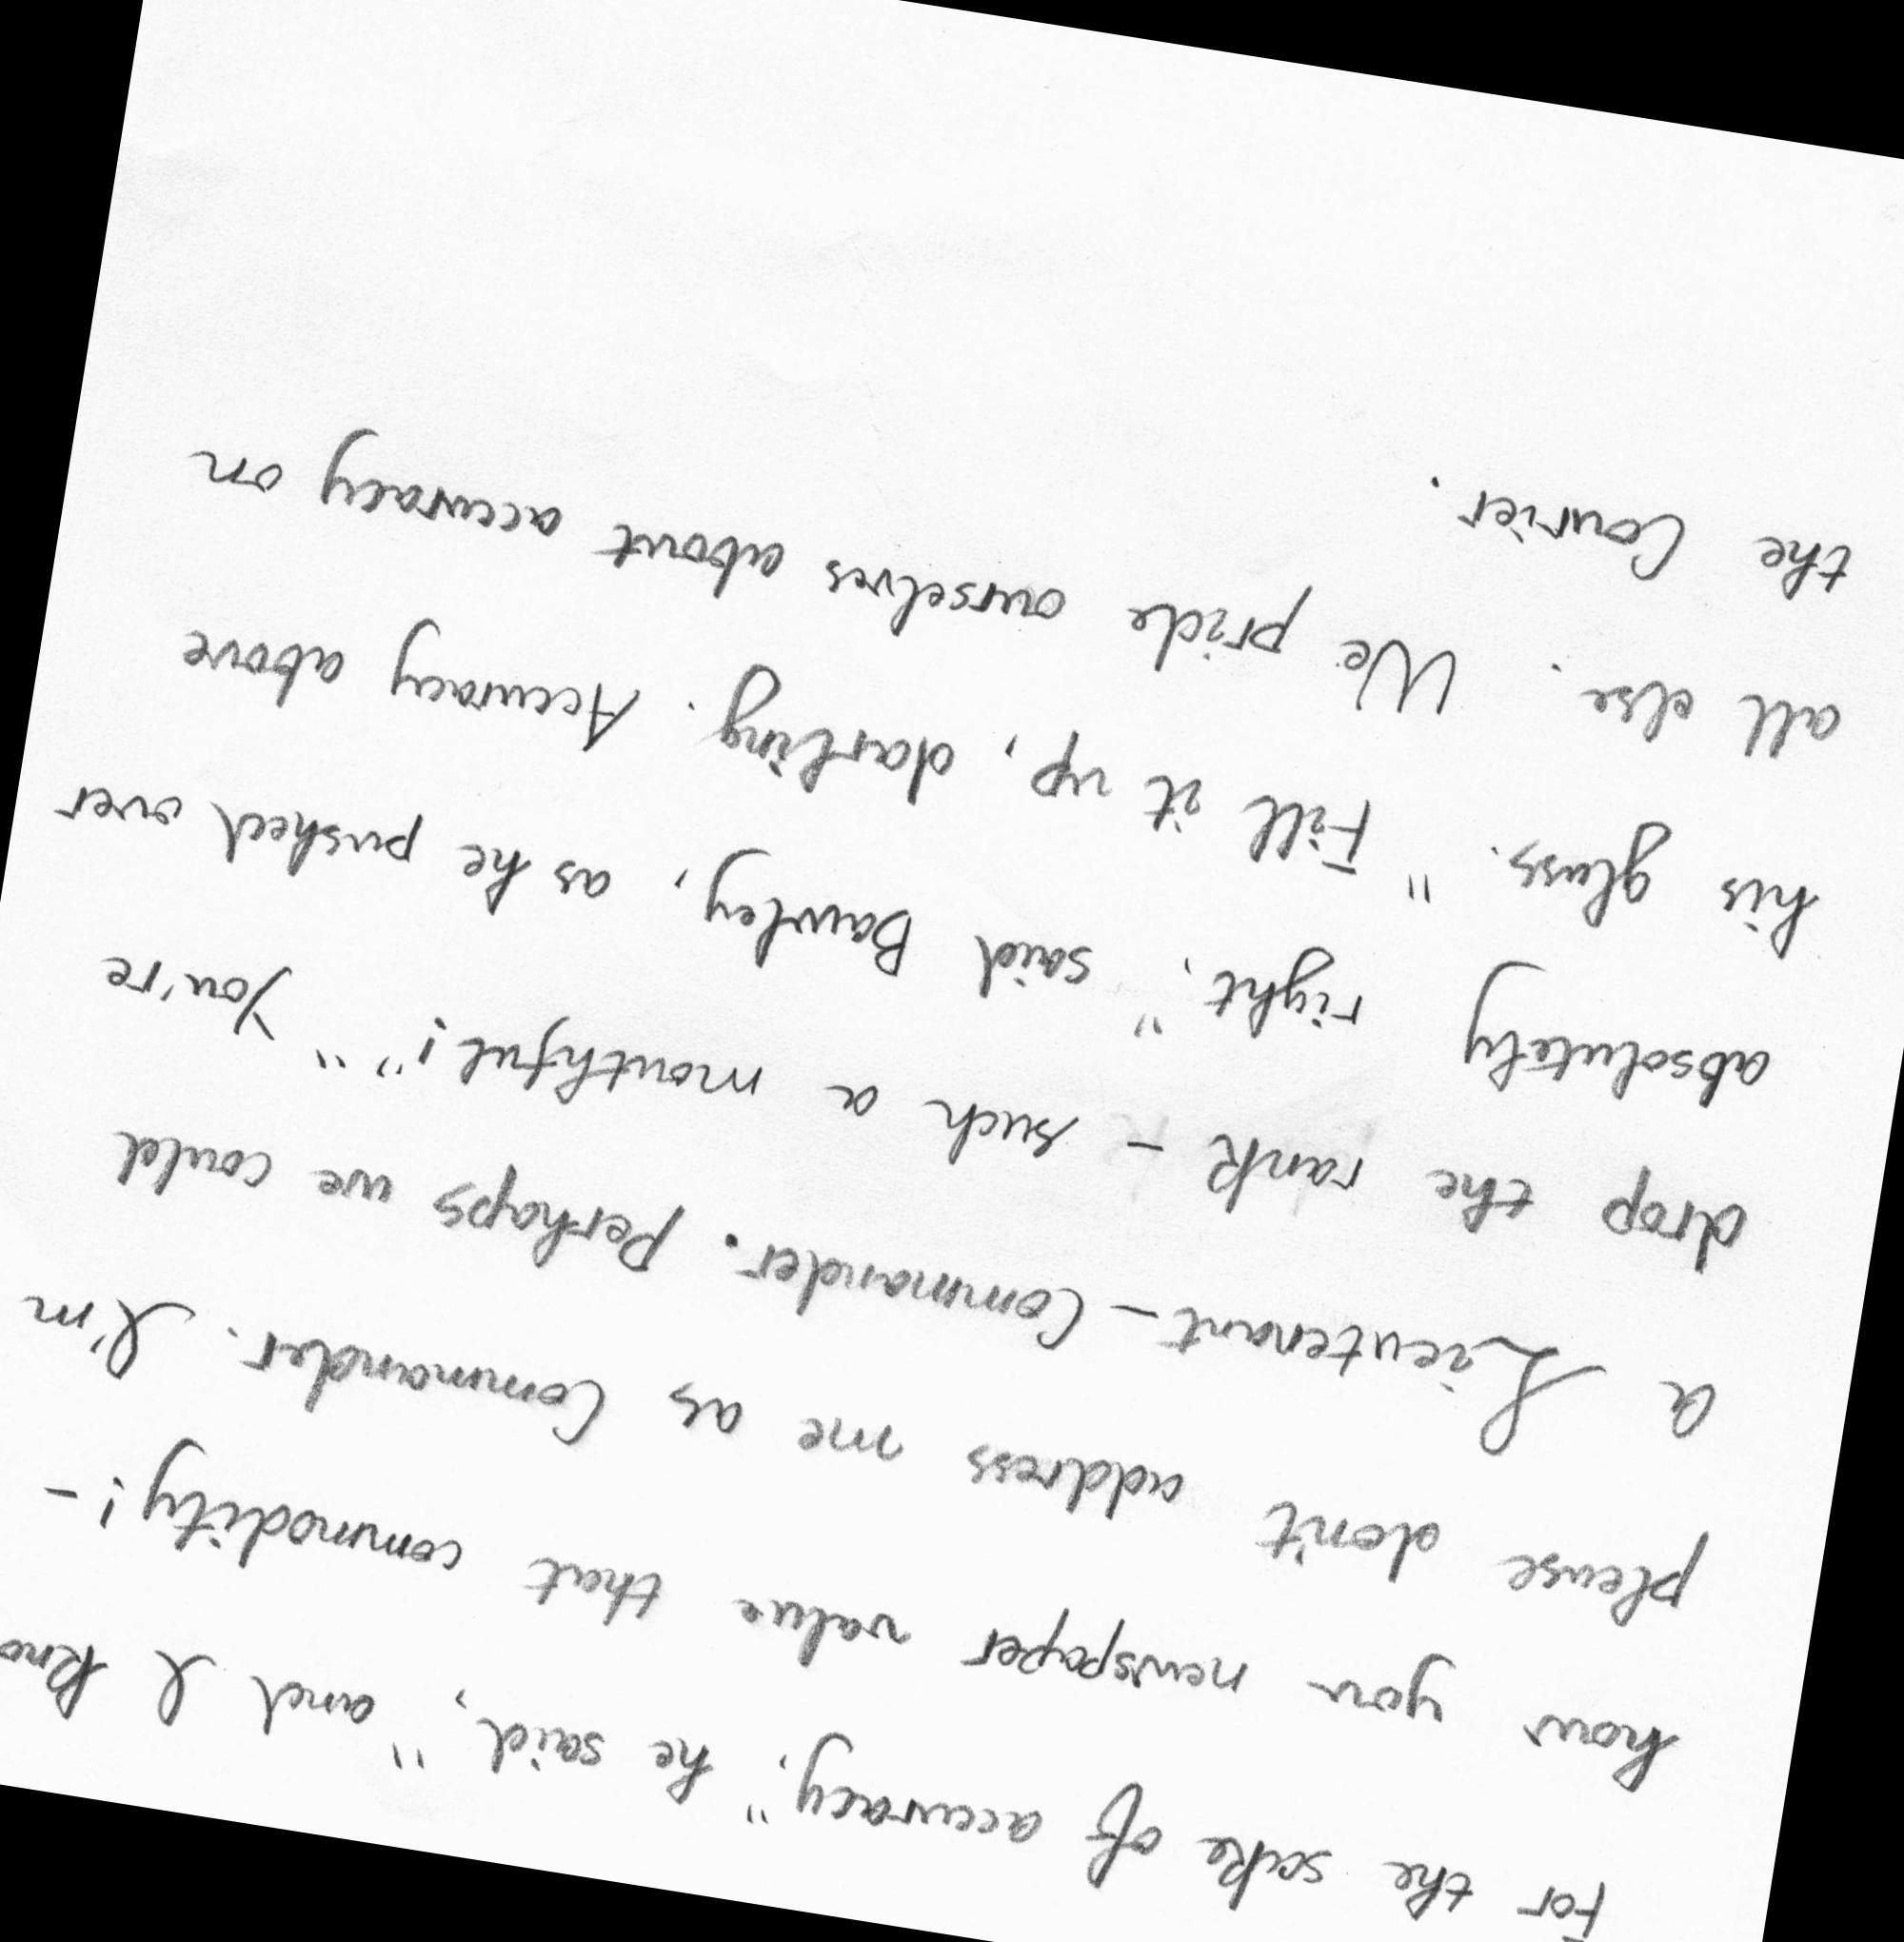 For the sake of accuracy," he said, "and I kno
how your newspaper value that commodity! -
please don't address me as Commander. I'm
a Lieutenant - Commander. Perhaps we could
drop the rank - such a mouthful!" "You're
absolutely right," said Bawley, as he pushed over
his glass. "Fill it up, darling. Accuracy above
all else. We pride ourselves about accuracy on
the Courier.